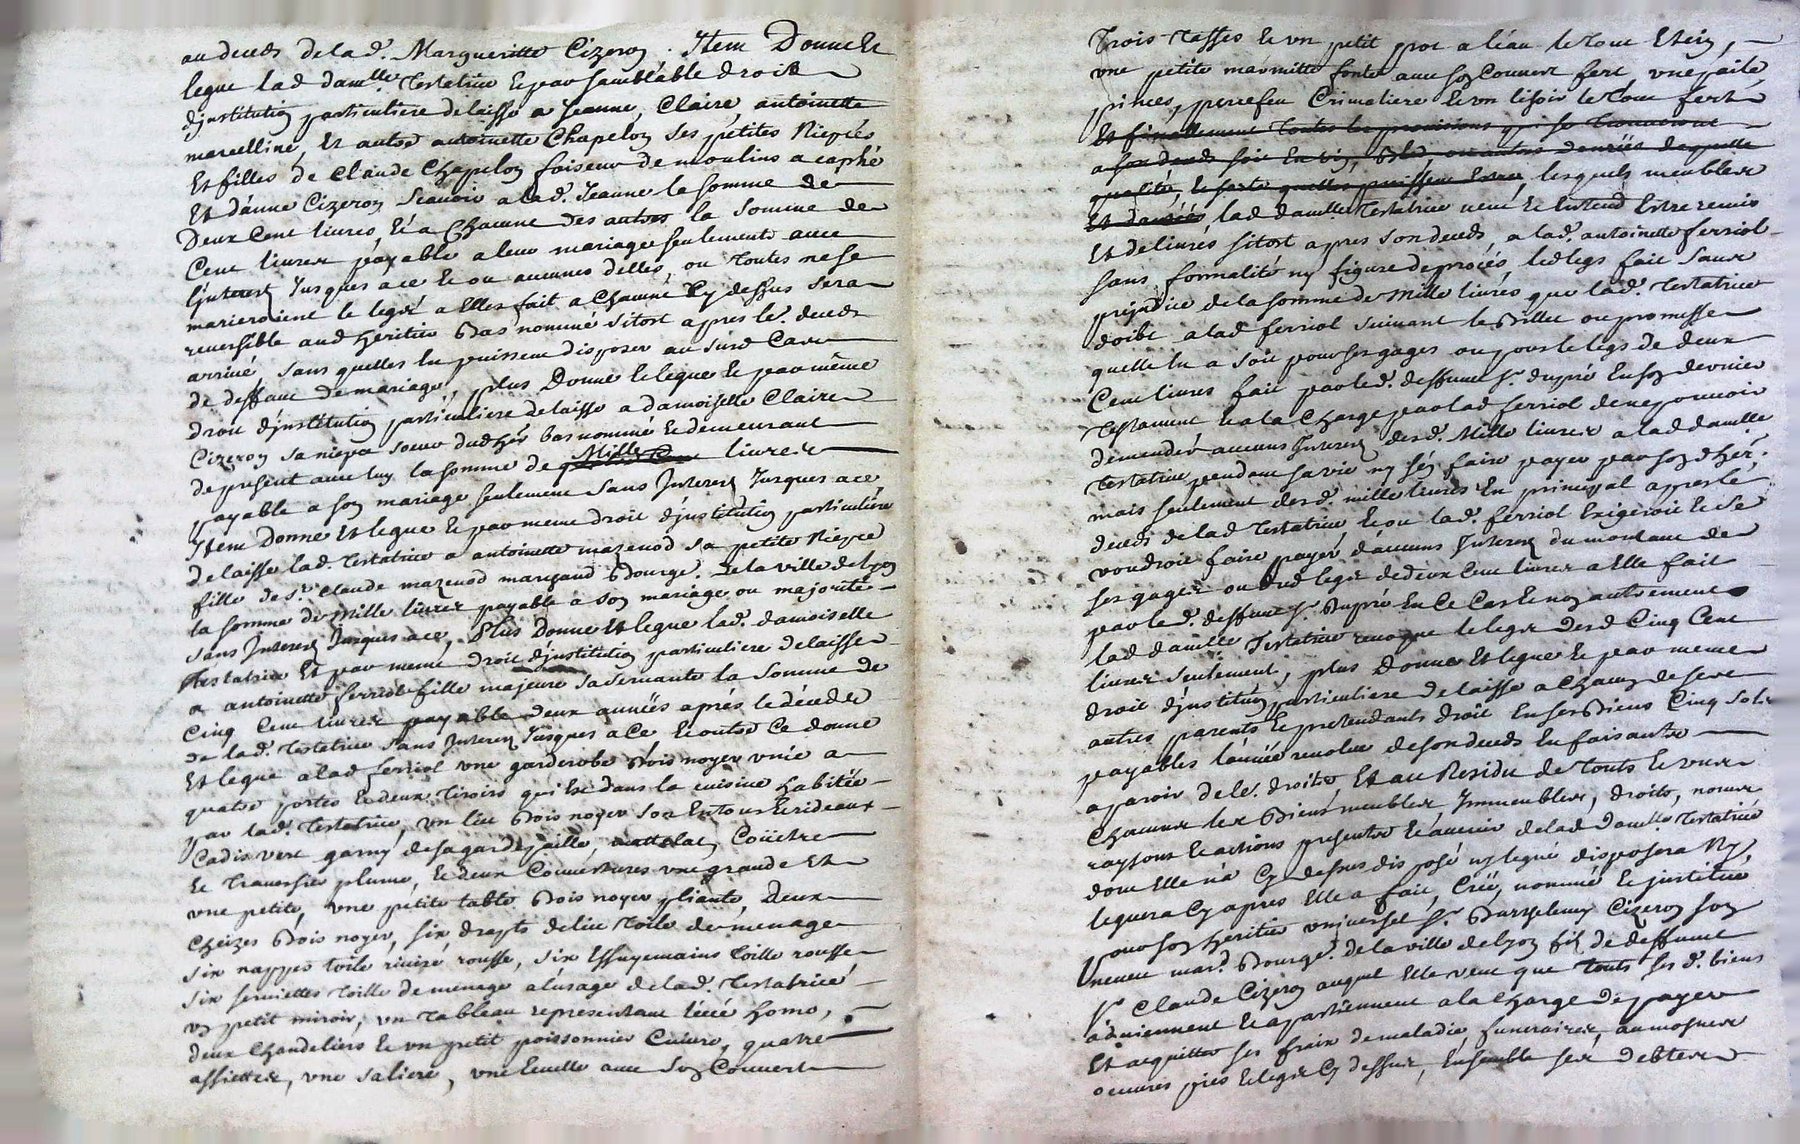 au deceds de lad.e Margueritte Cizeron. Item Donne Et
legue lad damlle Testatrice Et par semblable droit
d'jnstitution particuliere delaisse a Jeanne, Claire antoinette
marcelline, Et autre antoinette Chapelon ses petites Niepces
Et filles de Claude Chapelon faiseur de moulins a caphé
Et d'anne Cizeron Scauoir a lad. Jeanne la somme de
Deux Cent liures Et a Chacune des autres la Somme de
Cent liures payable a leur mariage seulement auec
l'jnterest Jusques a ce Et ou aucunes d'elles, ou Toutes ne se
marieroient le legat a Elles fait a Chacune Cy dessus sera
reuersible aud heritier Bas nommé sitost apres le d. deceds
arriué sans quelles En puissent disposer au susd Cas
de deffaut de mariage, plus Donne Et legue Et par même
droit d'jnstitution particuliere delaisse a damoiselle Claire
Cizeron sa niepce soeur dud hér bas nommé Et demeurant
de present auec luy la somme de Mille liures
payable a son mariage seulement sans Jnterest Jusques a ce,
Item Donne Et legue Et par meme droit d'jnstitution particuliere
delaisse lad. Testatrice a antoinette mazenod sa petite Niepce
fille de Sr. Claude mazenod marchand Bourge. de la ville de lyon
la somme de Mille liures payable a son mariage ou majorité
sans Jnterest Jusques a ce, Plus Donne Et legue lad. damoiselle
Testatrice Et par meme droit d'jnstitution particuliere delaisse
a antoinette ferriol fille majeure sa seruante la Somme de
Cinq Cent liures payable deux années aprés le décéd de
de lad. Testatrice sans Jnterest Jusques a Ce Et outre Ce donne
Et legue a lad ferriol vne garderobe Bois noyer vnie a
quatre portes Et deux Tiroirs qui Est dans la cuisine habitée
par lad. Testatrice, vn lict Bois noyer son Entour Et rideaux
Cadis vert garny de sa gardepaille, mattelat, Coüetre
Et Trauersier plume, Et deux Couuertures vne grande Et
vne petite, vne petite table Bois noyer pliante, Deux
Cheizes Bois noyer, six drapts de lict Toile de menage
six nappes toile rousse, six Essuyemains toille rousse
six seruiettes toille de menage a l'usage de lad. Testatrice
vn petit miroir, vn Tableau representant l'écce homo,
deux Chandeliers Et vn petit poissonnier Cuivre, quatre
assiettes, vne saliere, vne Ecuelle auec Son Couuert
Trois Tasses Et vn petit pot a l'eau le Tout Etein,
vne petite marmitte fonte auec son Couuert fert, vne paile
pinces, porrefeu Crimaliere Et vn le Tout fert
Et finallement Toutes les prouisions qui se Trouueront
a son deceds soit En vin, Bled, ou autres denrées de quelle
qualité, Et sorte quelles puissent Estre lesquels meubles
Et danrées lad damlle Testatrice veut Et Entend Estre remis
Et deliurés sitost apres son deceds, a lad. antoinette ferriol
sans formalité ny figure de procés, led legs fait Sans
prejudice de la somme de Mille liures que lad. Testatrice
doibt a lad ferriol suiuant le Billet ou promesse
quelle En a soit pour ses gages ou pour le legs de deux
Cent liures fait par le d. deffunt Sr. dupré En son dernier
Testament Et a la Charge par lad ferriol de ne pouuoir
demender aucuns Jnterest desd. Mille liures a lad damlle
Testatrice pendant sa vie ny s'En faire payer par son d hér.
mais seulement desd. mille liures En principal apres le
deceds de lad Testatrice, Et ou lad. ferriol Exigeroit Et se
voudroit faire payer d'aucuns Jnterest du montant de
ses gages ou dud legs de deux Cent liures a Elle fait
par le d. deffunt Sr. Dupré En Ce Cas Et non autrement
lad damlle Testatrice reuoque le legs desd Cinq Cent
liures seulement, plus Donne Et legue Et par meme
droit d'jnstituon particuliere delaisse a Chacun de ses
autres parents Et pretendants droit En ses Biens Cinq Sols
payables l'année reuolue de son deceds En faisant
aparoir de le. droits, Et au Residu de Touts Et vns
Chacuns les Biens meubles Jmmeubles, droits, noms
raysons Et actions presents Et auenir de lad damlle Testatrice
dont Elle n'a Cy dessus disposé ny legué disposera Ny
leguera Cy apres Elle a fait, Créé, nommé Et jnstitué
pour son heritier vniuersel Sr. Barthelemy Cizeron son
neueu mard. Bourge. de la ville de lyon fils de deffunt
Sr Claude Cizeron auquel Elle veut que Touts ses d. biens
aduiennent Et apartiennent a la charge de payer
Et acquitter ses frais de maladie funeraires, aumosnes
oeuures pies Et legs Cy dessus, Ensemble ses debtes